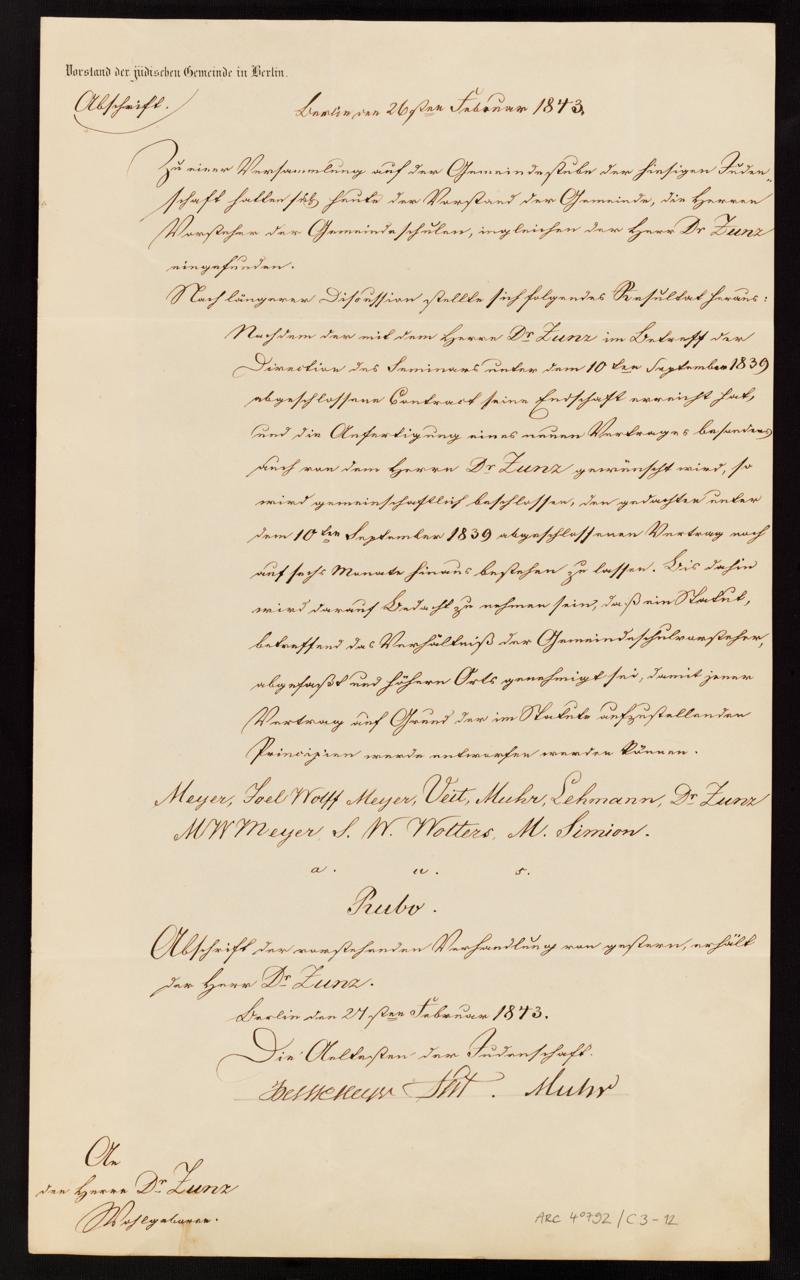 Vorstand der jüdischen Gemeinde in Berlin.
Abschrift.
Berlin, den 26sten Februar 1843.
Zu einer Versammlung auf der Gemeindestube der hiesigen Juden-
schaft hatten sich heute der Vorstand der Gemeinde, die Herren
Vorsteher der Gemeindeschulen, ingleichen der Herr Dr Zunz
eingefunden.
Nach längerer Discussion stellte sich folgendes Resultat heraus:
Nachdem der mit dem Herrn Dr Zunz im Betreff der
Direction des Seminars unter dem 10ten September 1839
abgeschlossene Contract seine Endschaft erreicht hat,
und die Anfertigung eines neuen Vertrages besonders
auch von dem Herrn Dr Zunz gewünscht wird, so
wird gemeinschaftlich beschlossen, den gedachten unter
dem 10ten September 1839 abgeschlossenen Vertrag noch
auf sechs Monate hinaus bestehen zu lassen. Bis dahin
wird darauf Bedacht zu nehmen sein, daß ein Statut,
betreffend das Verhältniß der Gemeindeschulvorsteher,
abgefaßt und höhern Orts genehmigt sei, damit jener
Vertrag auf Grund der im Statute aufzustellenden
Principien werde entworfen werden können.
Meyer, Joel Wolff Meyer, Veit, Muhr, Lehmann, Dr Zunz
M W Meyer, S. W. Wolters, M. Simion.
a. u. s.
Rubo.
Abschrift der vorstehenden Verhandlung von gestern, erhält
der Herr Dr Zunz.
Berlin den 27sten Februar 1843.
Die Aeltesten der Judenschaft.
Veit. Muhr
An
den Herrn Dr Zunz
Wohlgeboren.
ARC 4° 792 / C3-12